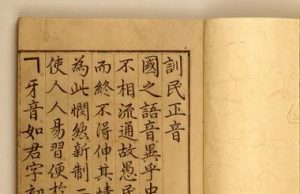 訓民正音
國之語音異乎中
不相流通故愚民
而終不得伸其情
為此憫然新制二
使人人易習便於
ㄱ牙音如君字初